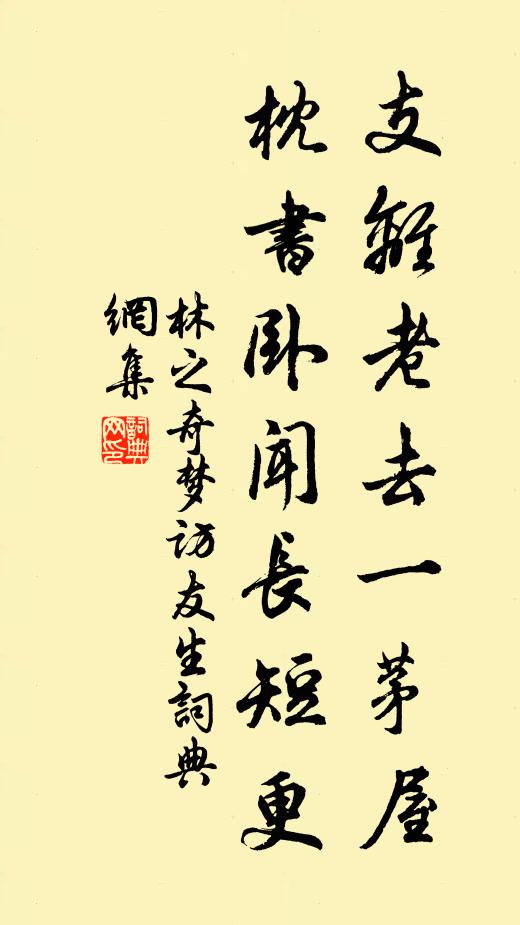 支離老去一茅屋
枕書臥聞長短更
林之奇梦访友生詞典
網集
詞典
网印